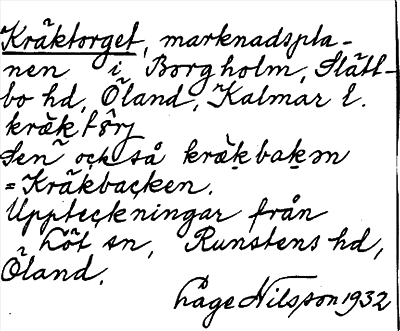 Kräktorget, marknadspla-
nen i Borgholm, Slätt-
bo hd, Öland, Kalmar l.
Sen också kräkbakən
= Kräkbacken.
Uppteckningar från
Löt sn, Runstens hd,
Öland.
Åge Nilsson 1932